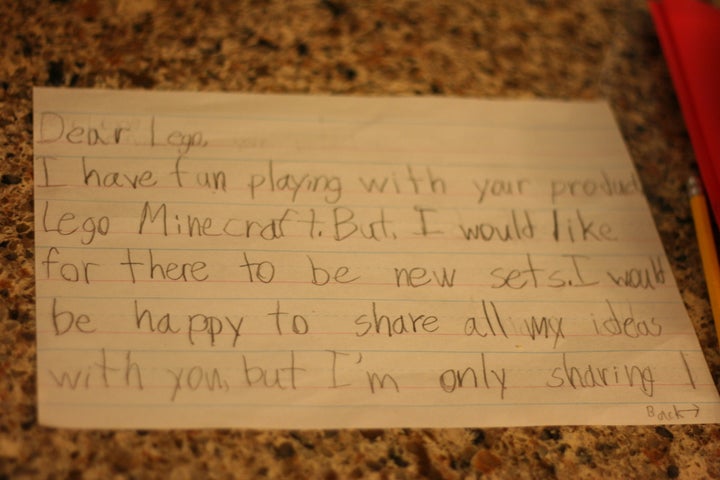 Dear Lego,
I have fun playing with your product
Lego Minecraft. But, I would like
for there to be new sets. I would
be happy to share all my ideas
with you, but I'm only sharing 1
Back→